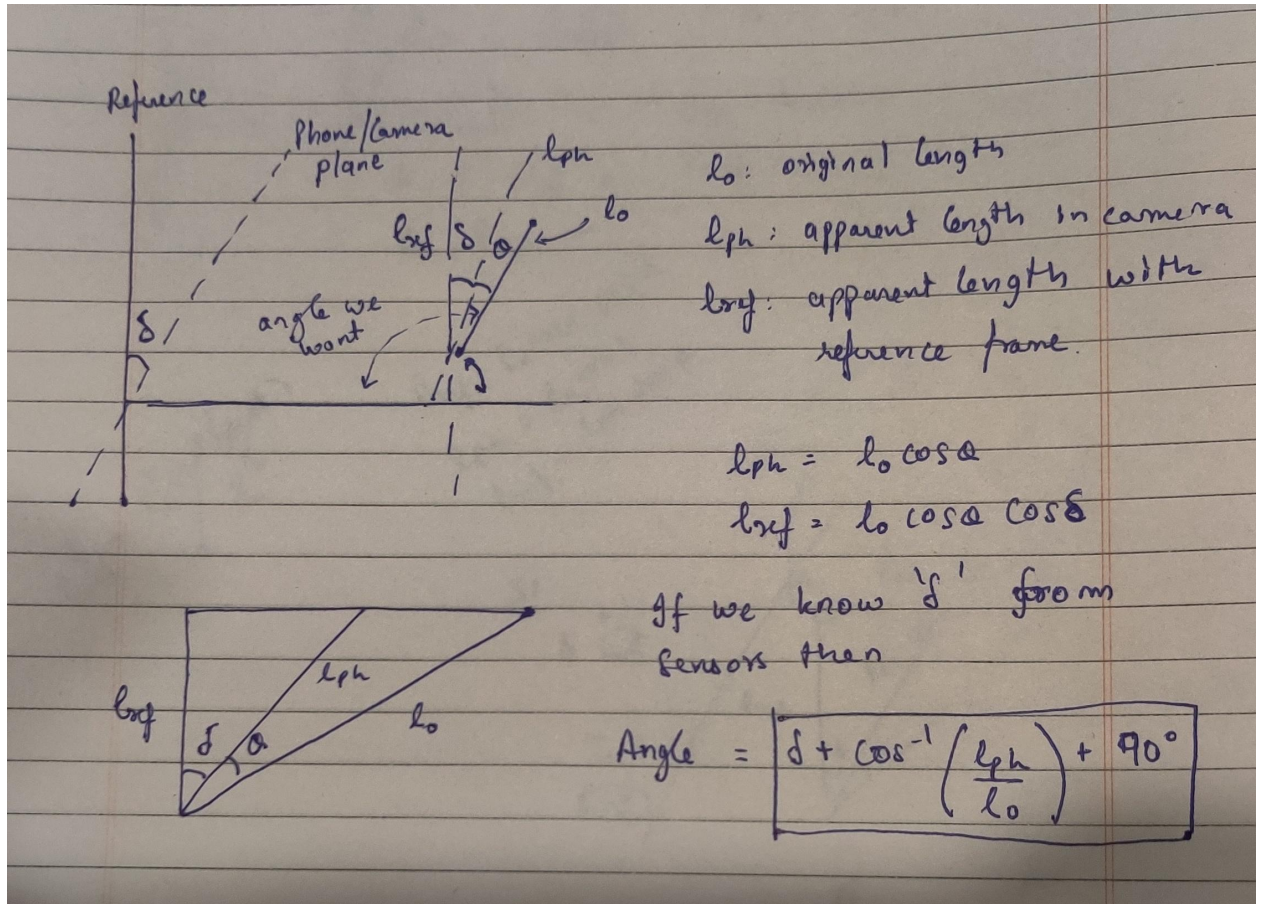 Reference
Phone/Camera
plane
lph
lo
lref
δ
θ
δ
angle we
want
lo: original length
lph: apparent length in camera
lref: apparent length with
reference frame.
lph = lo cosθ
lref = lo cosθ cosδ
If we know 'δ' from
sensors then
Angle = δ + cos⁻¹ (lph/lo) + 90°
lref
δ
θ
lph
lo